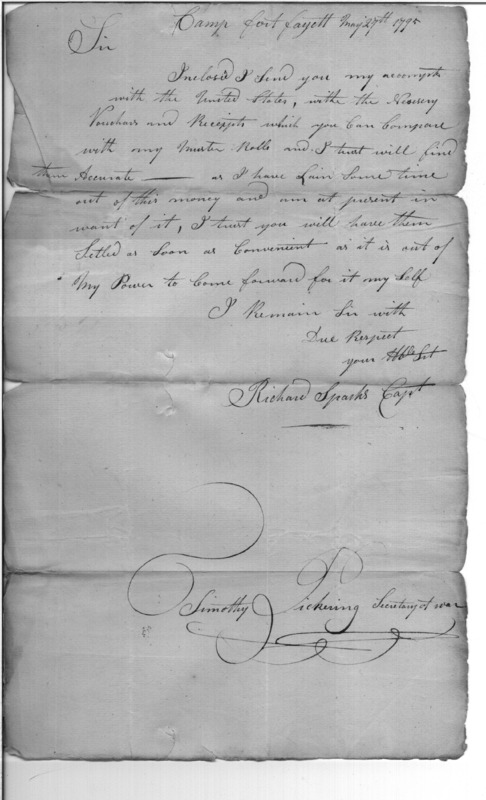 Camp fort fayett May 27th 1795
Sir
Inclosed I Send you my accompts
with the United States, withe the Nessery
Vouchars and Receipts which you Can Compare
with my Muster Rolls and I trust will find
them Accurate — as I have Lain Some time
out of this money and am at present in
want of it, I trust you will have them
Setled as Soon as Convenient as it is out of
My Power to Come forward for it my Self
I Remain Sir with
Due Respect
your Hble Svt
Richard Sparks Capt
Timothy Pickering Secretary of war